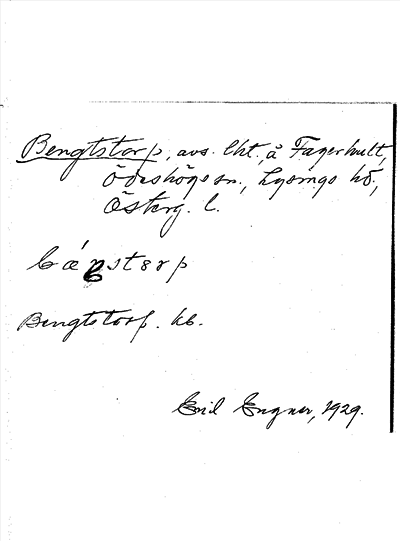 Bengtstorp, avs. lht., å Fagerhult,
Ödeshögs sn., Lysings hd.,
Österg. l.
bǽŋstɵrp
Bengtstorp. kb.
Emil Engner, 1929.